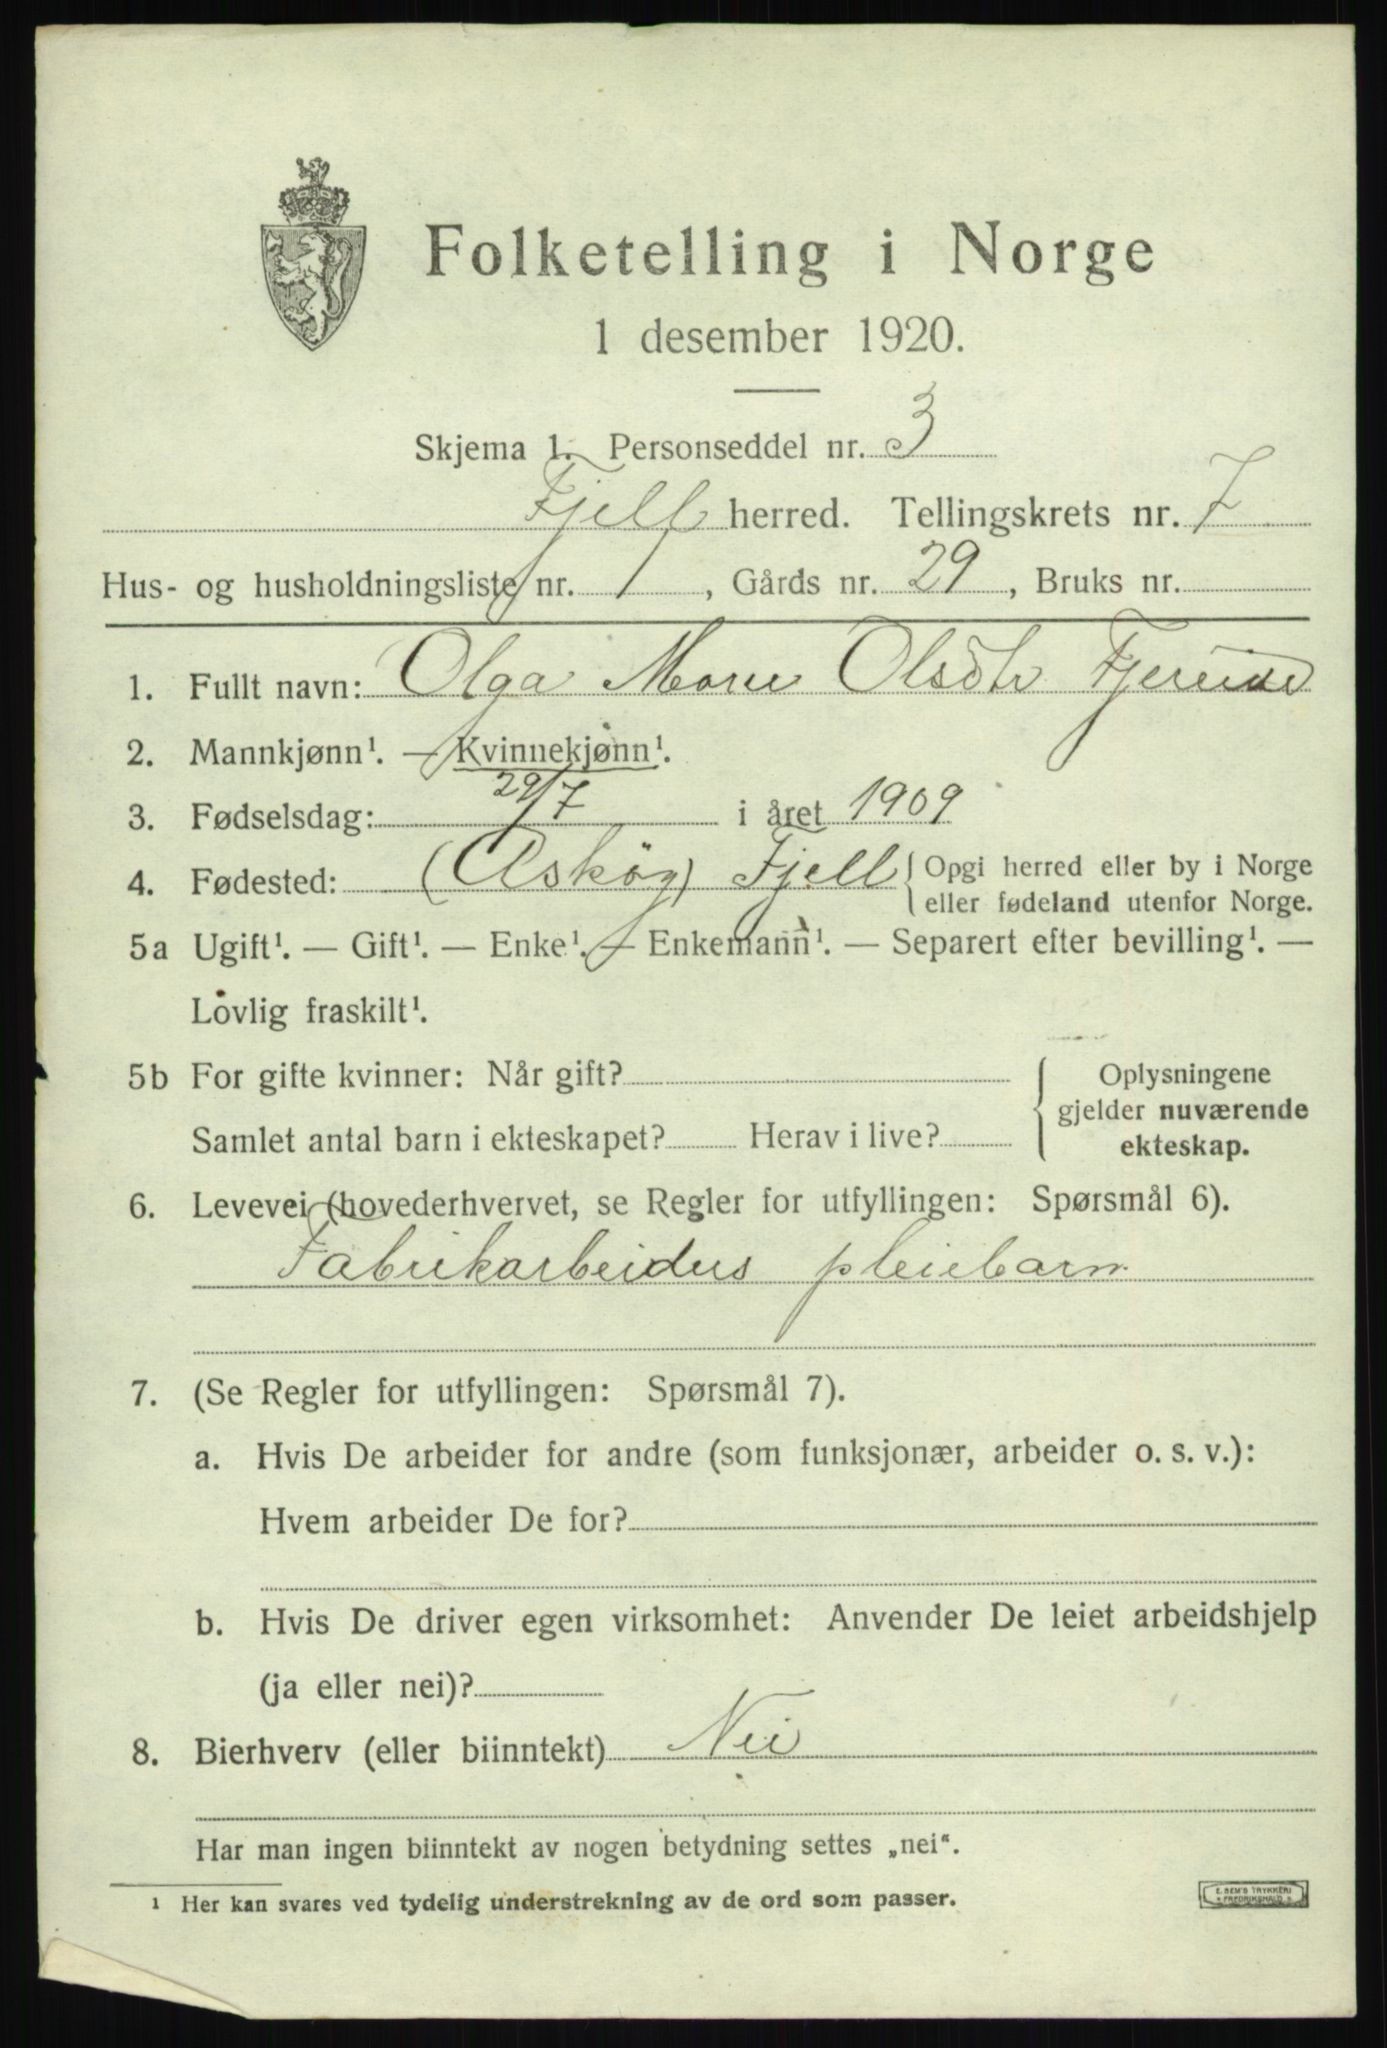 Folketelling i Norge
1 desember 1920.
Skjema 1. Personseddel nr. 3
Fjell herred. Tellingskrets nr. 7
Hus- og husholdningsliste nr. 1, Gårds nr. 29, Bruks nr.
1. Fullt navn: Olga Marie Olsdtr
2. Mannkjønn¹. — Kvinnekjønn¹.
3. Fødselsdag: 29/7 i året 1909
4. Fødested: (Askøy) Fjell { Opgi herred eller by i Norge
eller fødeland utenfor Norge.
5a Ugift¹. — Gift¹. — Enke¹. — Enkemann¹. — Separert efter bevilling¹. —
Lovlig fraskilt¹.
5b For gifte kvinner: Når gift?
Samlet antal barn i ekteskapet? Herav i live?
Oplysningene
gjelder nuværende
ekteskap.
6. Levevei (hovederhvervet, se Regler for utfyllingen: Spørsmål 6).
Fabrikarbeiders pleiebarn
7. (Se Regler for utfyllingen: Spørsmål 7).
a. Hvis De arbeider for andre (som funksjonær, arbeider o. s. v.):
Hvem arbeider De for?
b. Hvis De driver egen virksomhet: Anvender De leiet arbeidshjelp
(ja eller nei)?
8. Bierhverv (eller biinntekt) Nei
Har man ingen biinntekt av nogen betydning settes „nei“.
¹ Her kan svares ved tydelig understrekning av de ord som passer.
E. SEM'S TRYKKERI
FREDRIKSHALD